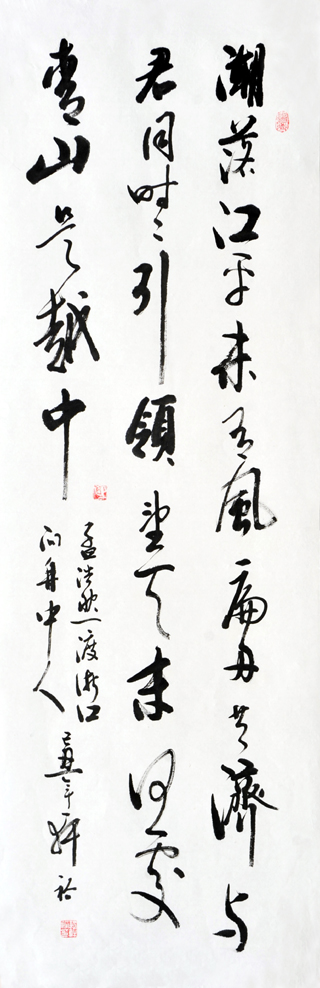 潮落江平未有風扁舟共濟与
君同时〻引領望天末何處
青山是越中
孟浩然渡浙江
问舟中人